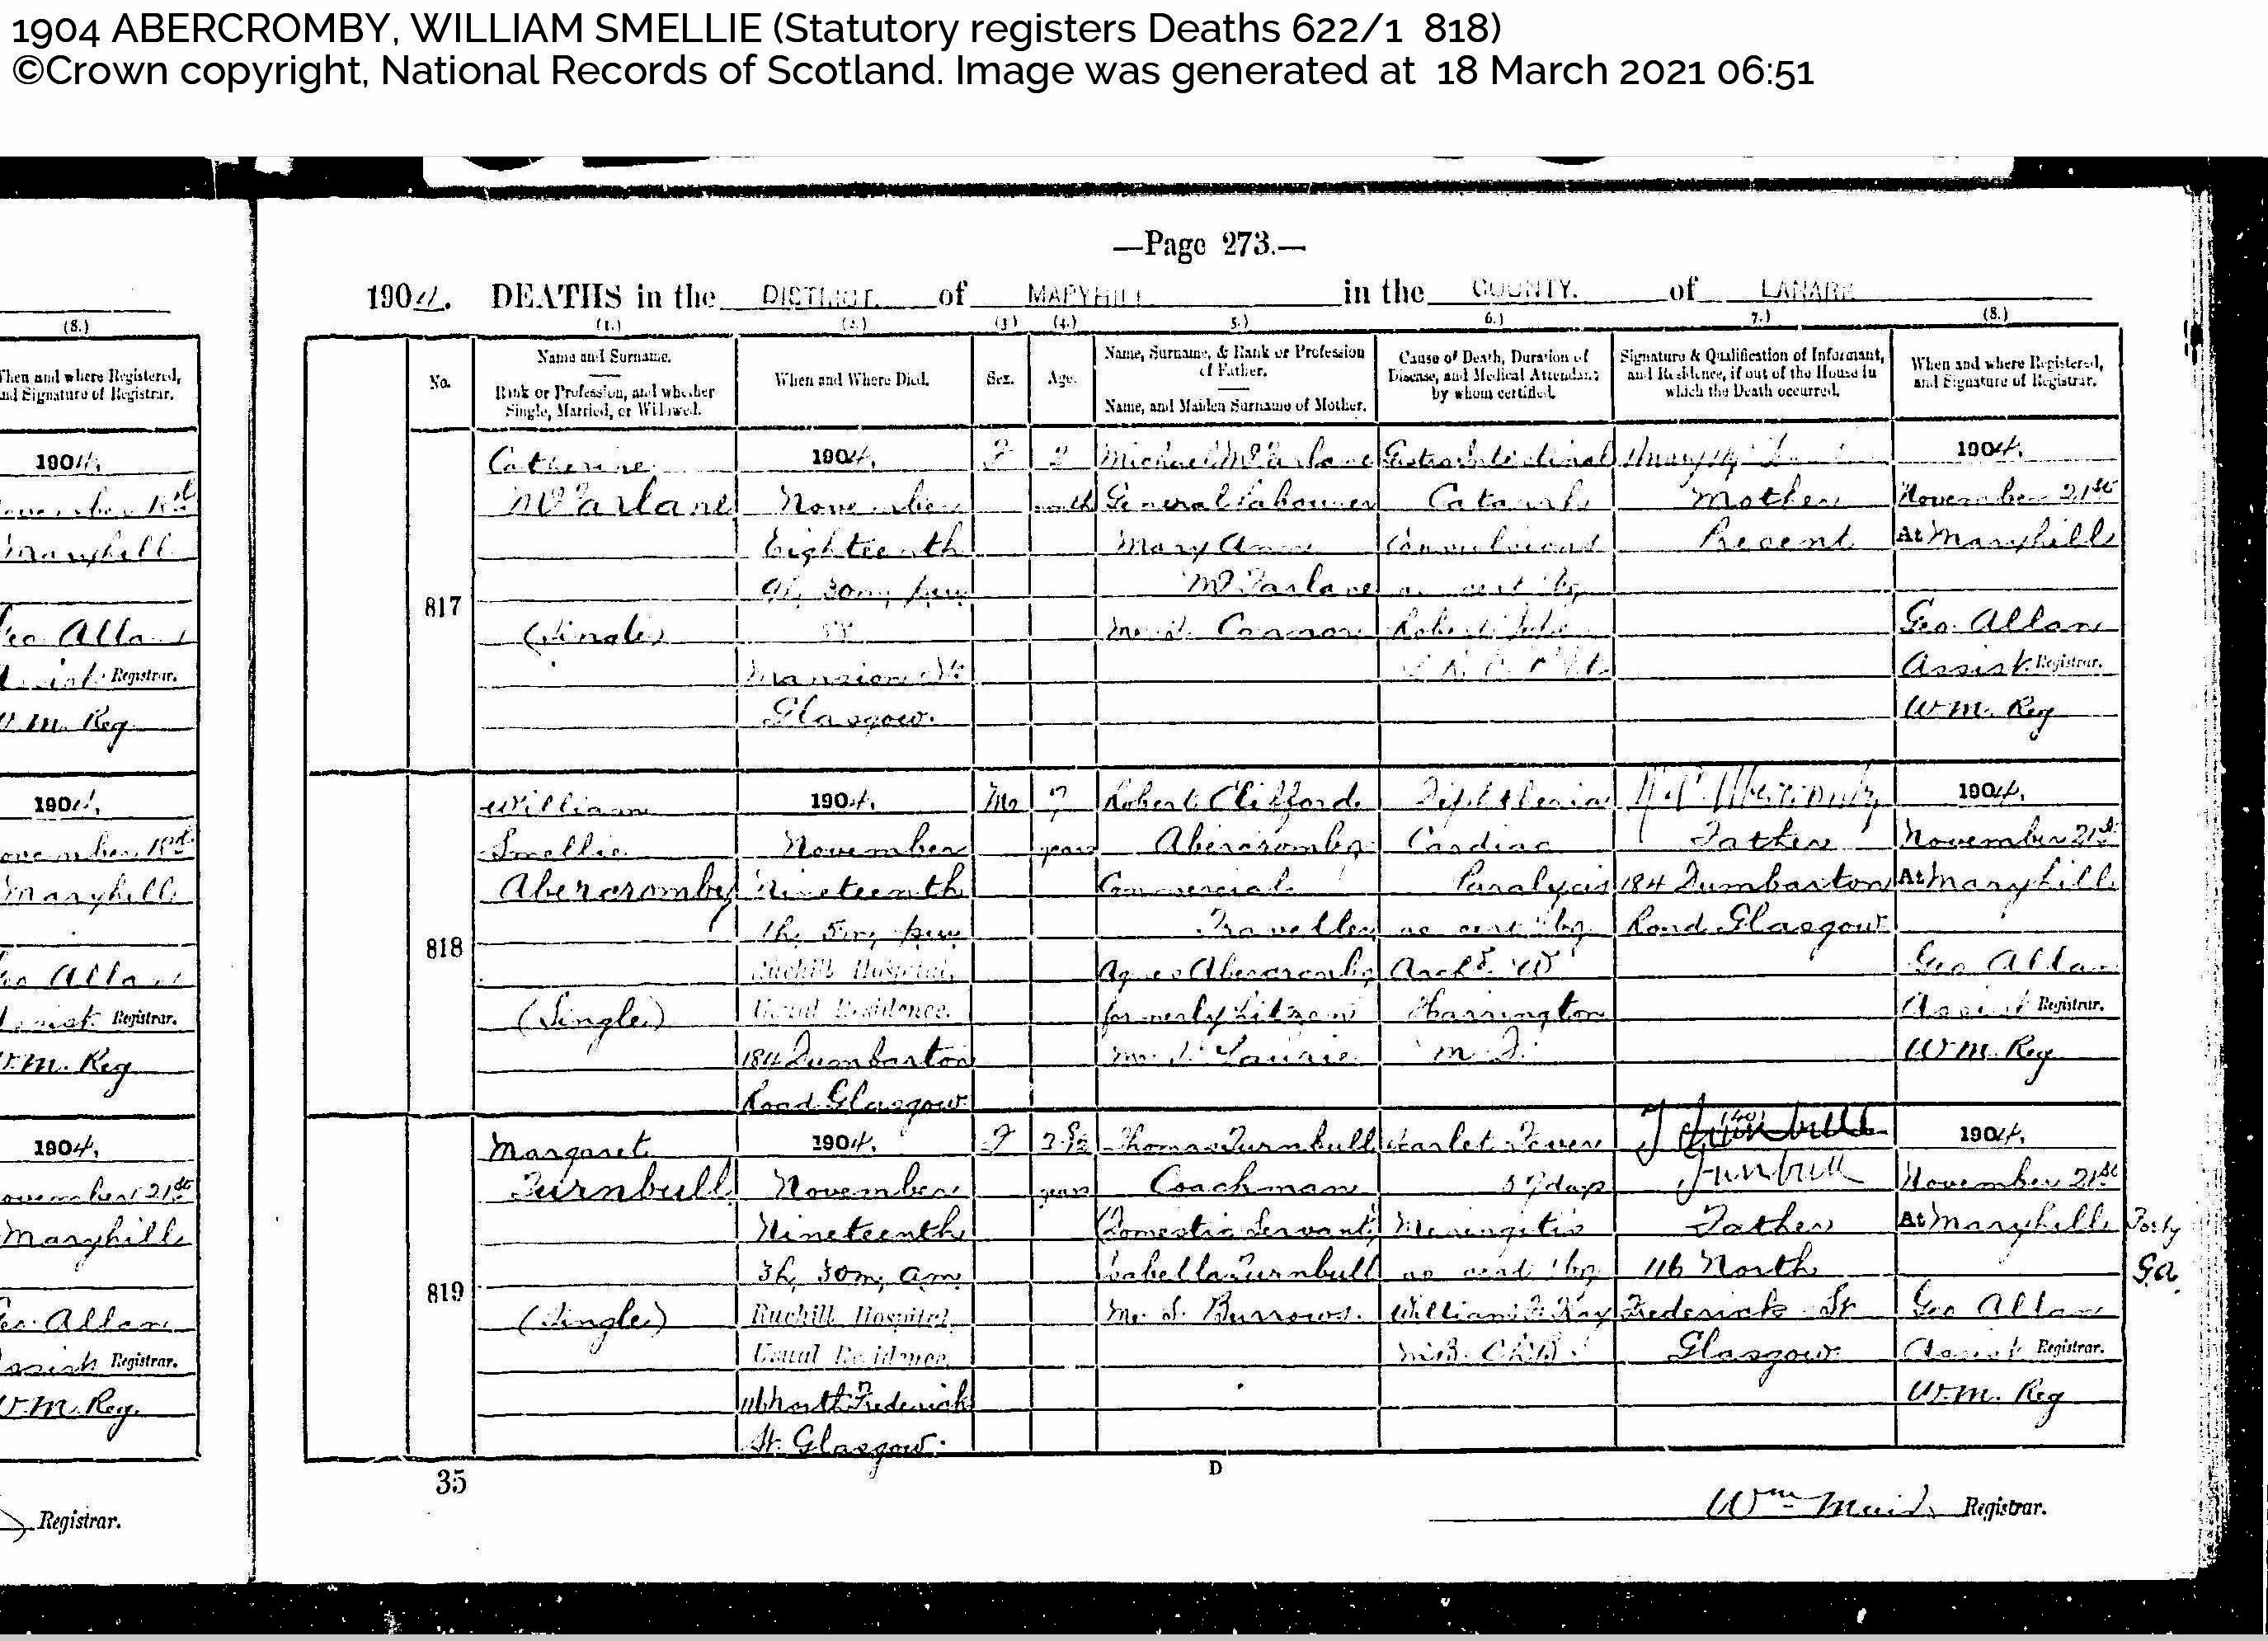 1904 ABERCROMBY, WILLIAM SMELLIE (Statutory registers Deaths 622/1 818)
©Crown copyright, National Records of Scotland. Image was generated at 18 March 2021 06:51
—Page 273.—
1904. DEATHS in the DISTRICT of MARYHILL in the COUNTY. of LANARK
(8.)
When and where Registered,
and Signature of Registrar.
1904.
November 18th
Maryhill
Geo Allan
Assist Registrar.
W.M. Reg
1904.
November 18th
Maryhill
Geo Allan
Assist Registrar.
W.M. Reg
1904.
November 21st
Maryhill
Geo. Allan
Assist Registrar.
W.M. Reg.
Registrar.
(1.) (2.) (3) (4.) 5.) 6.) 7.) (8.)
No.
Name and Surname.
Rank or Profession, and whether
Single, Married, or Widowed.
When and Where Died.
Sex.
Age.
Name, Surname, & Rank or Profession
of Father.
Name, and Maiden Surname of Mother.
Cause of Death, Duration of
Disease, and Medical Attendant
by whom certified.
Signature & Qualification of Informant,
and Residence, if out of the House in
which the Death occurred.
When and where Registered,
and Signature of Registrar.
817
Catherine
McFarlane
(Single)
1904.
November
Eighteenth
9h, 30m, p.m.
Mansion St
Glasgow.
F
2
months
Michael McFarlane
General Labourer
Mary Ann
McFarlane
m.s. Connor
Gastro Intestinal
Catarrh
Convulsions
as cert by
Robert
Mary
Mother
Present
1904.
November 21st
At Maryhill
Geo. Allan
Assist Registrar.
W.M. Reg
818
William
Smellie
Abercromby
(Single)
1904.
November
Nineteenth
1h, 5m, p.m.
Ruchill Hospital,
Usual Residence.
184 Dumbarton
Road Glasgow
M
7
years
Robert Clifford
Abercromby
Commercial
Traveller
Agnes Abercromby
formerly
m.s. Laurie
Diphtheria
Cardiac
Paralysis
as cert by
Archd W
Harrington
M.D.
R.C. Abercromby
Father
184 Dumbarton
Road Glasgow
1904.
November 21st
At Maryhill
Geo Allan
Assist Registrar.
W.M. Reg
819
Margaret
Turnbull
(Single)
1904.
November
Nineteenth
3h, 30m, a.m.
Ruchill Hospital,
Usual Residence
116 North Frederick
St. Glasgow.
F
years
Thomas Turnbull
Coachman
(Domestic Servant)
Isabella Turnbull
m.s. Burrows.
Scarlet Fever
37 days
Meningitis
as cert by
William F. Kay
M.B. Ch.B.
T
(40)
Turnbull
Father
116 North
Frederick St
Glasgow
1904.
November 21st
At Maryhill
Geo Allan
Assist Registrar.
W.M. Reg
Forty
G.A.
35
D
Wm Muir Registrar.